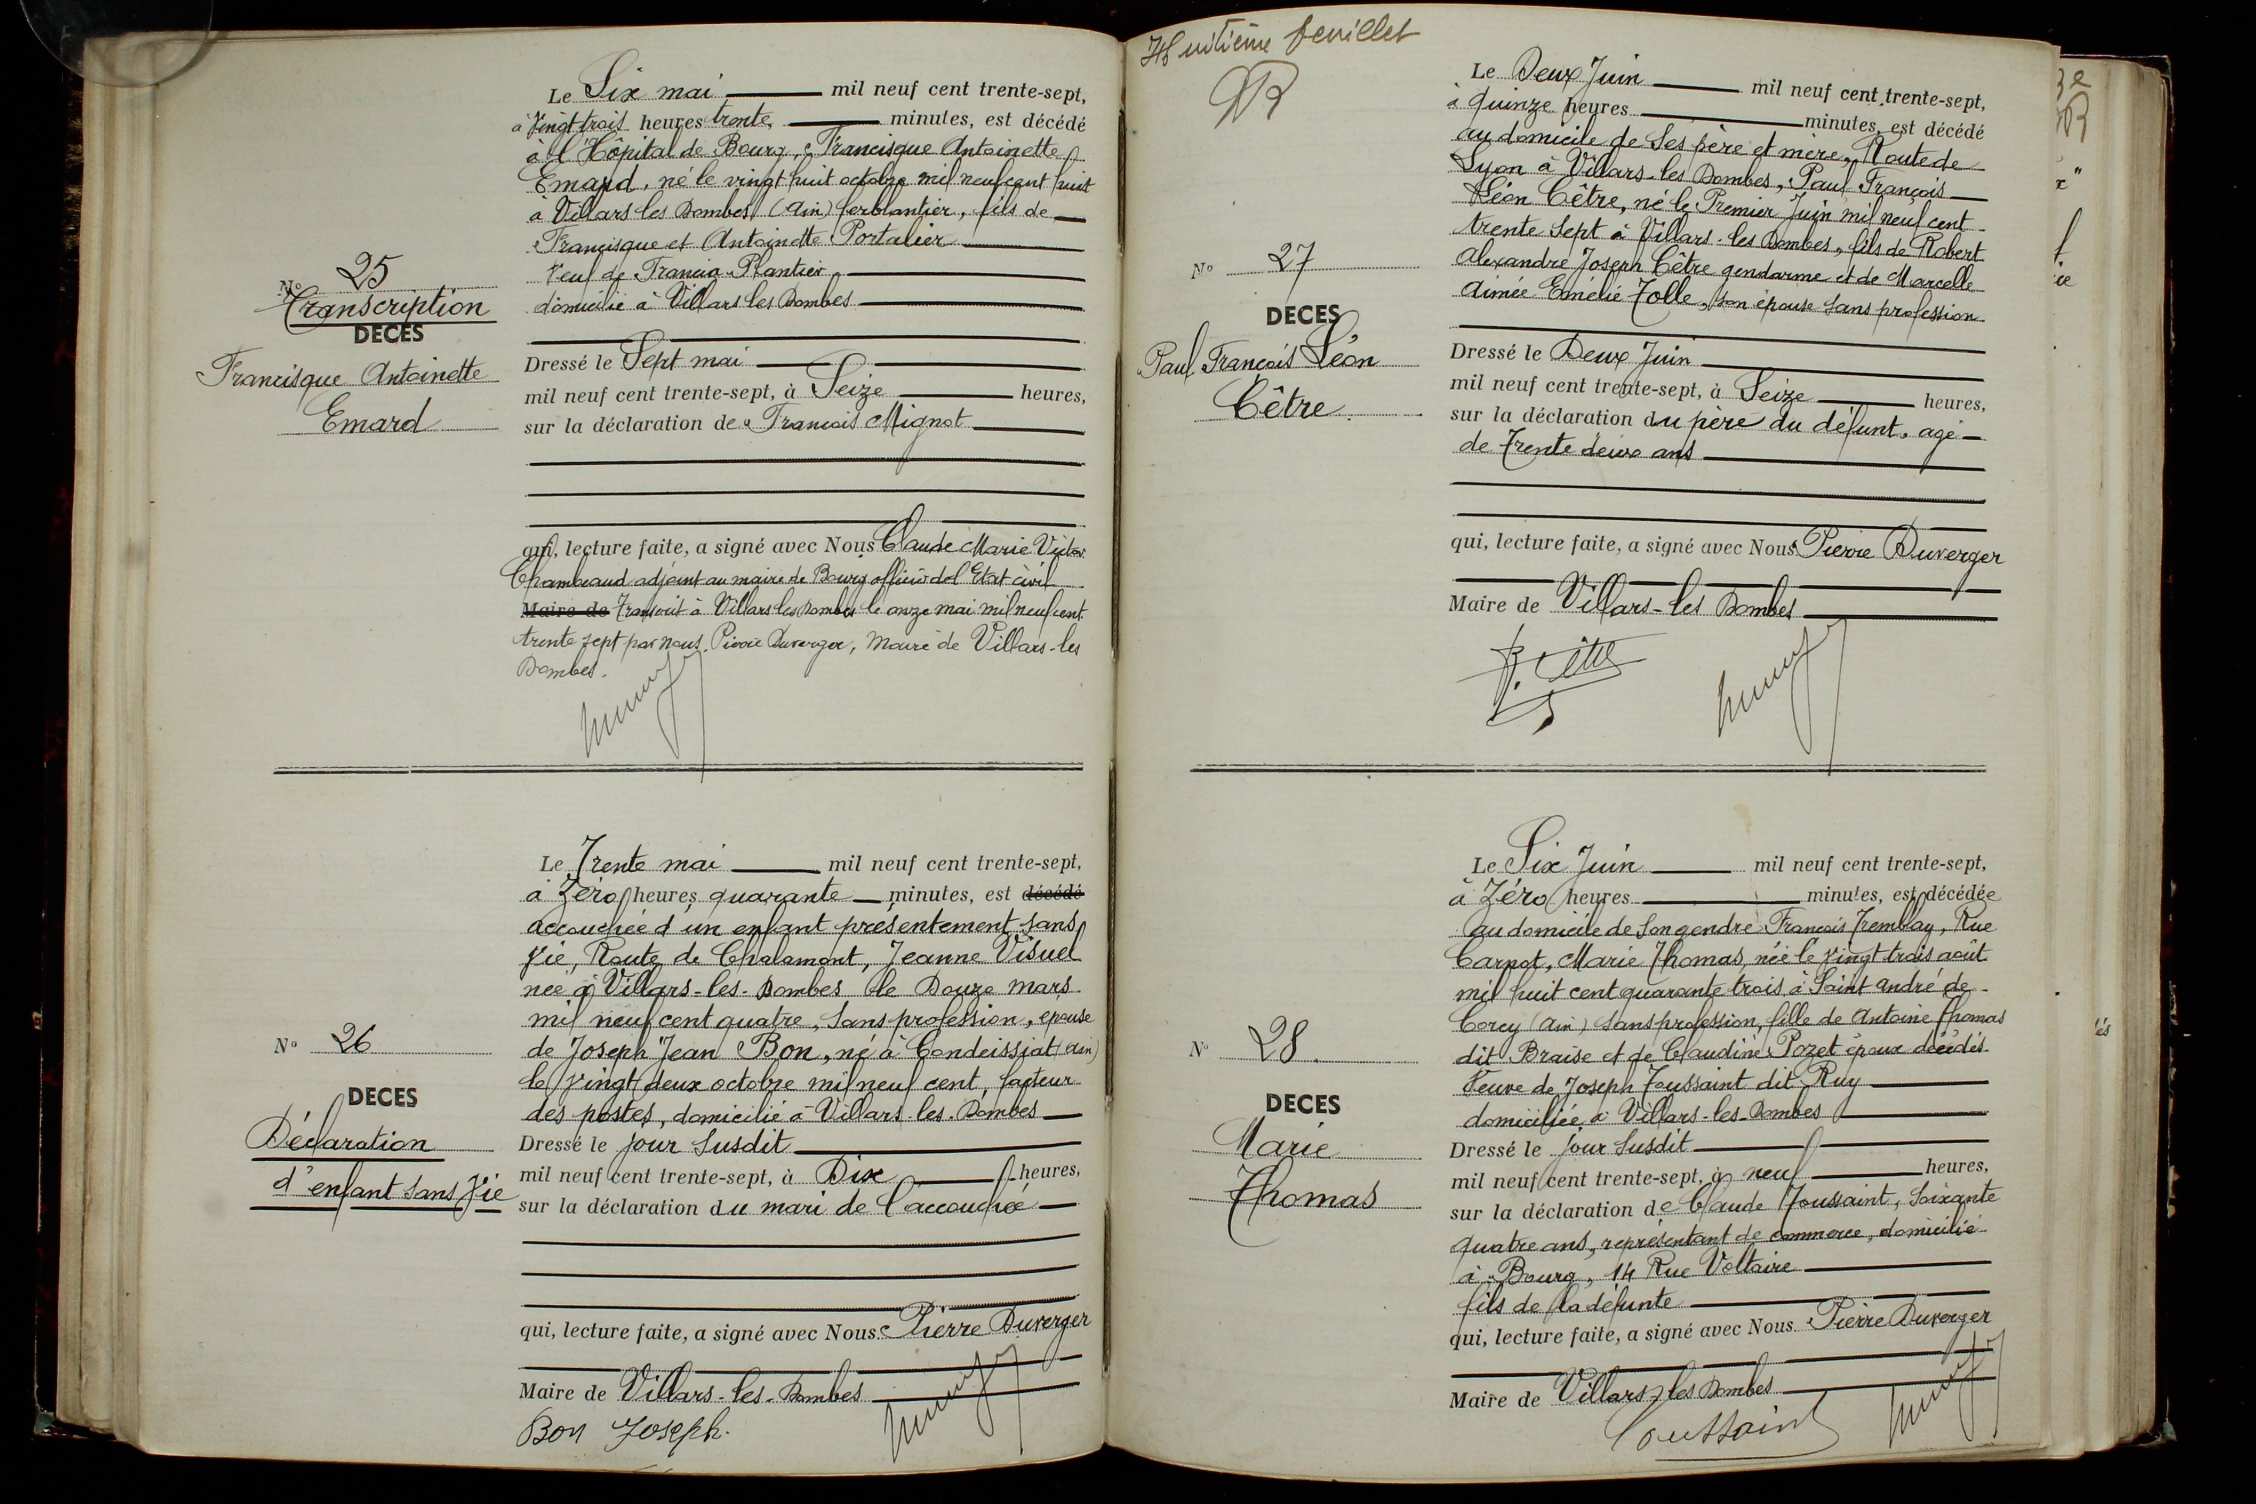 Le Six mai mil neuf cent trente-sept,
à Vingt trois heures trente, minutes, est décédé
à l'Hôpital de Bourg, Francisque Antoinette
Emard, né le vingt huit octobre mil neuf cent huit
à Villars les Dombes (Ain) ferblantier, fils de
Francisque et Antoinette Portalier
veuf de Francia Plantier
domicilié à Villars les Dombes
No 25
Transcription
DECES
Francisque Antoinette
Emard
Dressé le Sept mai
mil neuf cent trente-sept, à Seize heures,
sur la déclaration de François Mignot
qui, lecture faite, a signé avec Nous Claude Marie Victor
adjoint au maire de Bourg officier de l'Etat civil
Maire de Transcrit à Villars les Dombes le onze mai mil neuf cent
trente sept par nous Pierre Duverger, Maire de Villars-les
Dombes.
Le Trente mai mil neuf cent trente-sept,
à Zéro heures quarante minutes, est décédé
accouchée d'un enfant présentement sans
vie, Route de Chalamont, Jeanne Visuel
née à Villars-les-Dombes le Douze mars
mil neuf cent quatre, sans profession, épouse
de Joseph Jean Bon, né à Condeissiat (Ain)
le vingt deux octobre mil neuf cent, facteur
des postes, domicilié à Villars-les-Dombes
No 26
DECES
Déclaration
d'enfant sans vie
Dressé le jour susdit
mil neuf cent trente-sept, à Dix heures,
sur la déclaration du mari de l'accouchée
qui, lecture faite, a signé avec Nous Pierre Duverger
Maire de Villars-les-Dombes
Bon Joseph.
Huitième feuillet
Le Deux Juin mil neuf cent trente-sept,
à quinze heures minutes, est décédé
au domicile de ses père et mère, Route de
Lyon à Villars-les Dombes, Paul François
Léon Cêtre, né le Premier Juin mil neuf cent
trente sept à Villars-les Dombes, fils de Robert
Alexandre Joseph Cêtre gendarme et de Marcelle
Aimée Emélie Tolle, son épouse sans profession
No 27
DECES
Paul François Léon
Cêtre
Dressé le Deux Juin
mil neuf cent trente-sept, à Seize heures,
sur la déclaration du père du défunt, agé
de Trente deux ans
qui, lecture faite, a signé avec Nous Pierre Duverger
Maire de Villars-les Dombes
Le Six Juin mil neuf cent trente-sept,
à Zéro heures minutes, est décédée
au domicile de son gendre François Tremblay, Rue
Carnot, Marie Thomas, née le vingt trois août
mil huit cent quarante trois à Saint André de
Corcy (Ain) sans profession, fille de Antoine Thomas
dit Braise et de Claudine Pozet époux décédés
Veuve de Joseph Toussaint dit Ruy
domiciliée à Villars-les-Dombes
No 28.
DECES
Marie
Thomas
Dressé le jour susdit
mil neuf cent trente-sept, à neuf heures,
sur la déclaration de Claude Toussaint, Soixante
quatre ans, représentant de commerce, domicilié
à Bourg, 14 Rue Voltaire
fils de la défunte
qui, lecture faite, a signé avec Nous Pierre Duverger
Maire de Villars-les Dombes
Toussaint